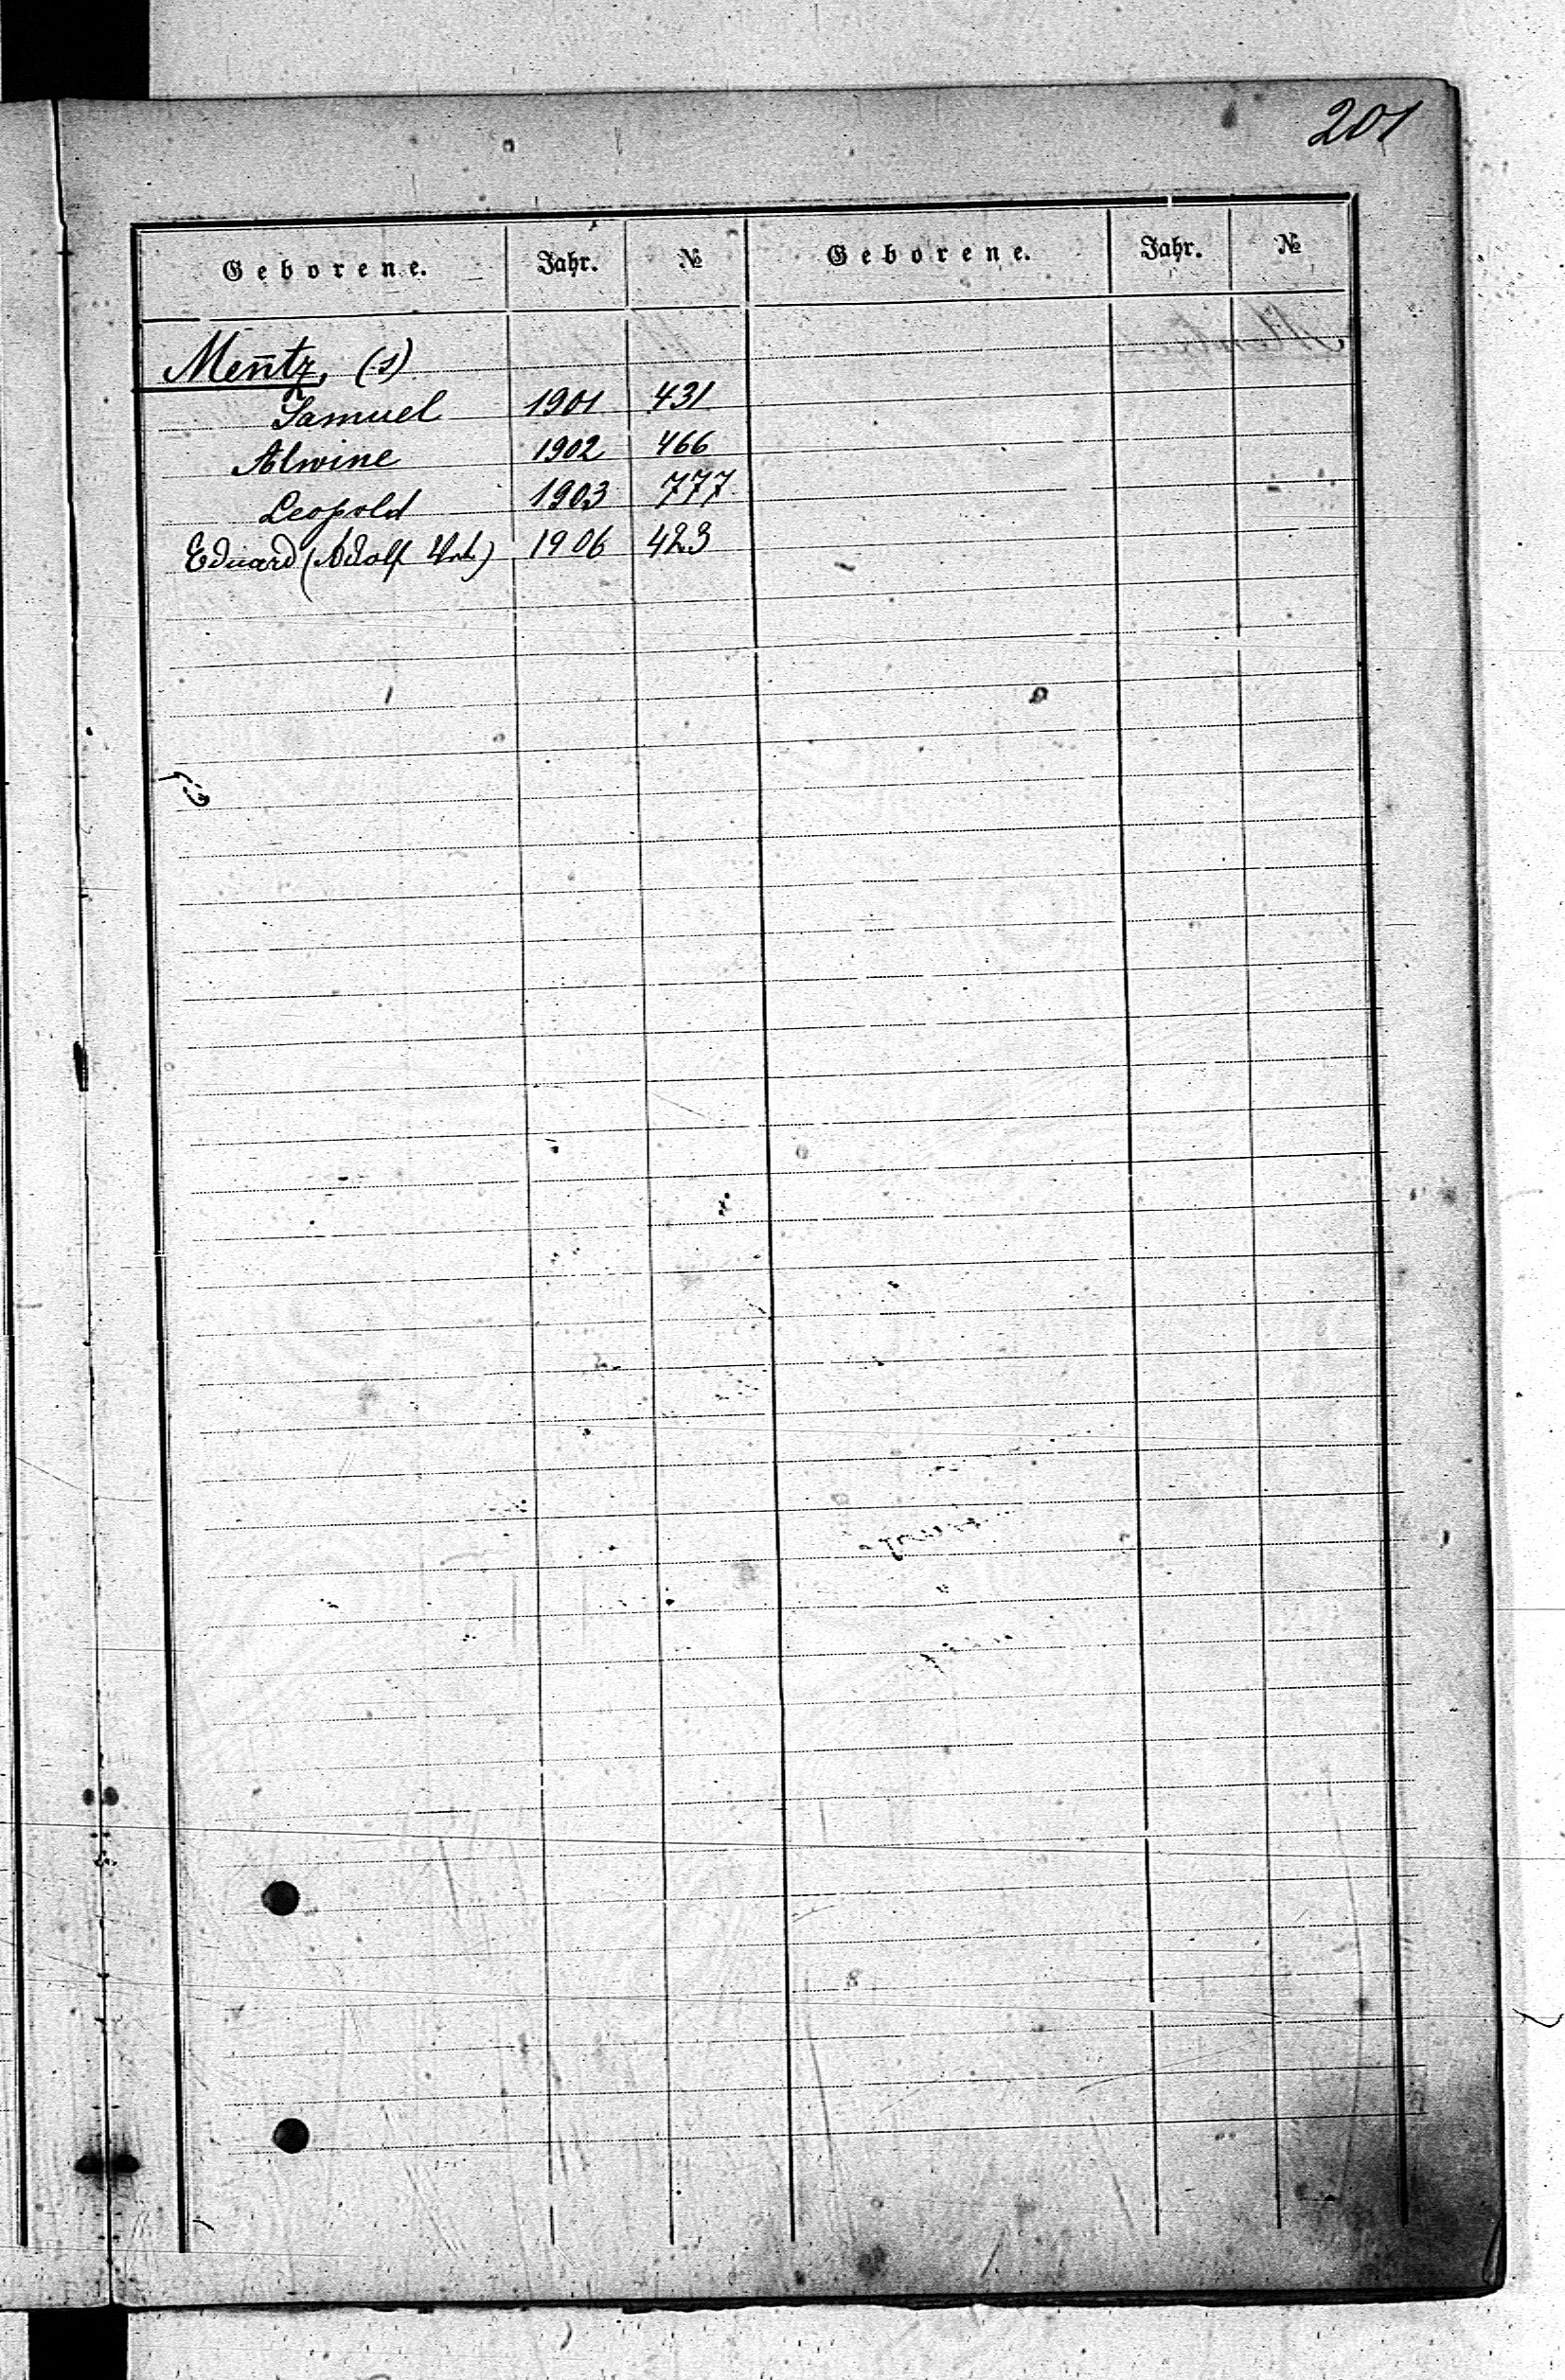 201
Geborene. Jahr. № Geborene. Jahr. №
Men̄tz, (s)
Samuel 1901 431
Alwine 1902 466
Leopold 1903 777
Eduard (Adolf 1906 423